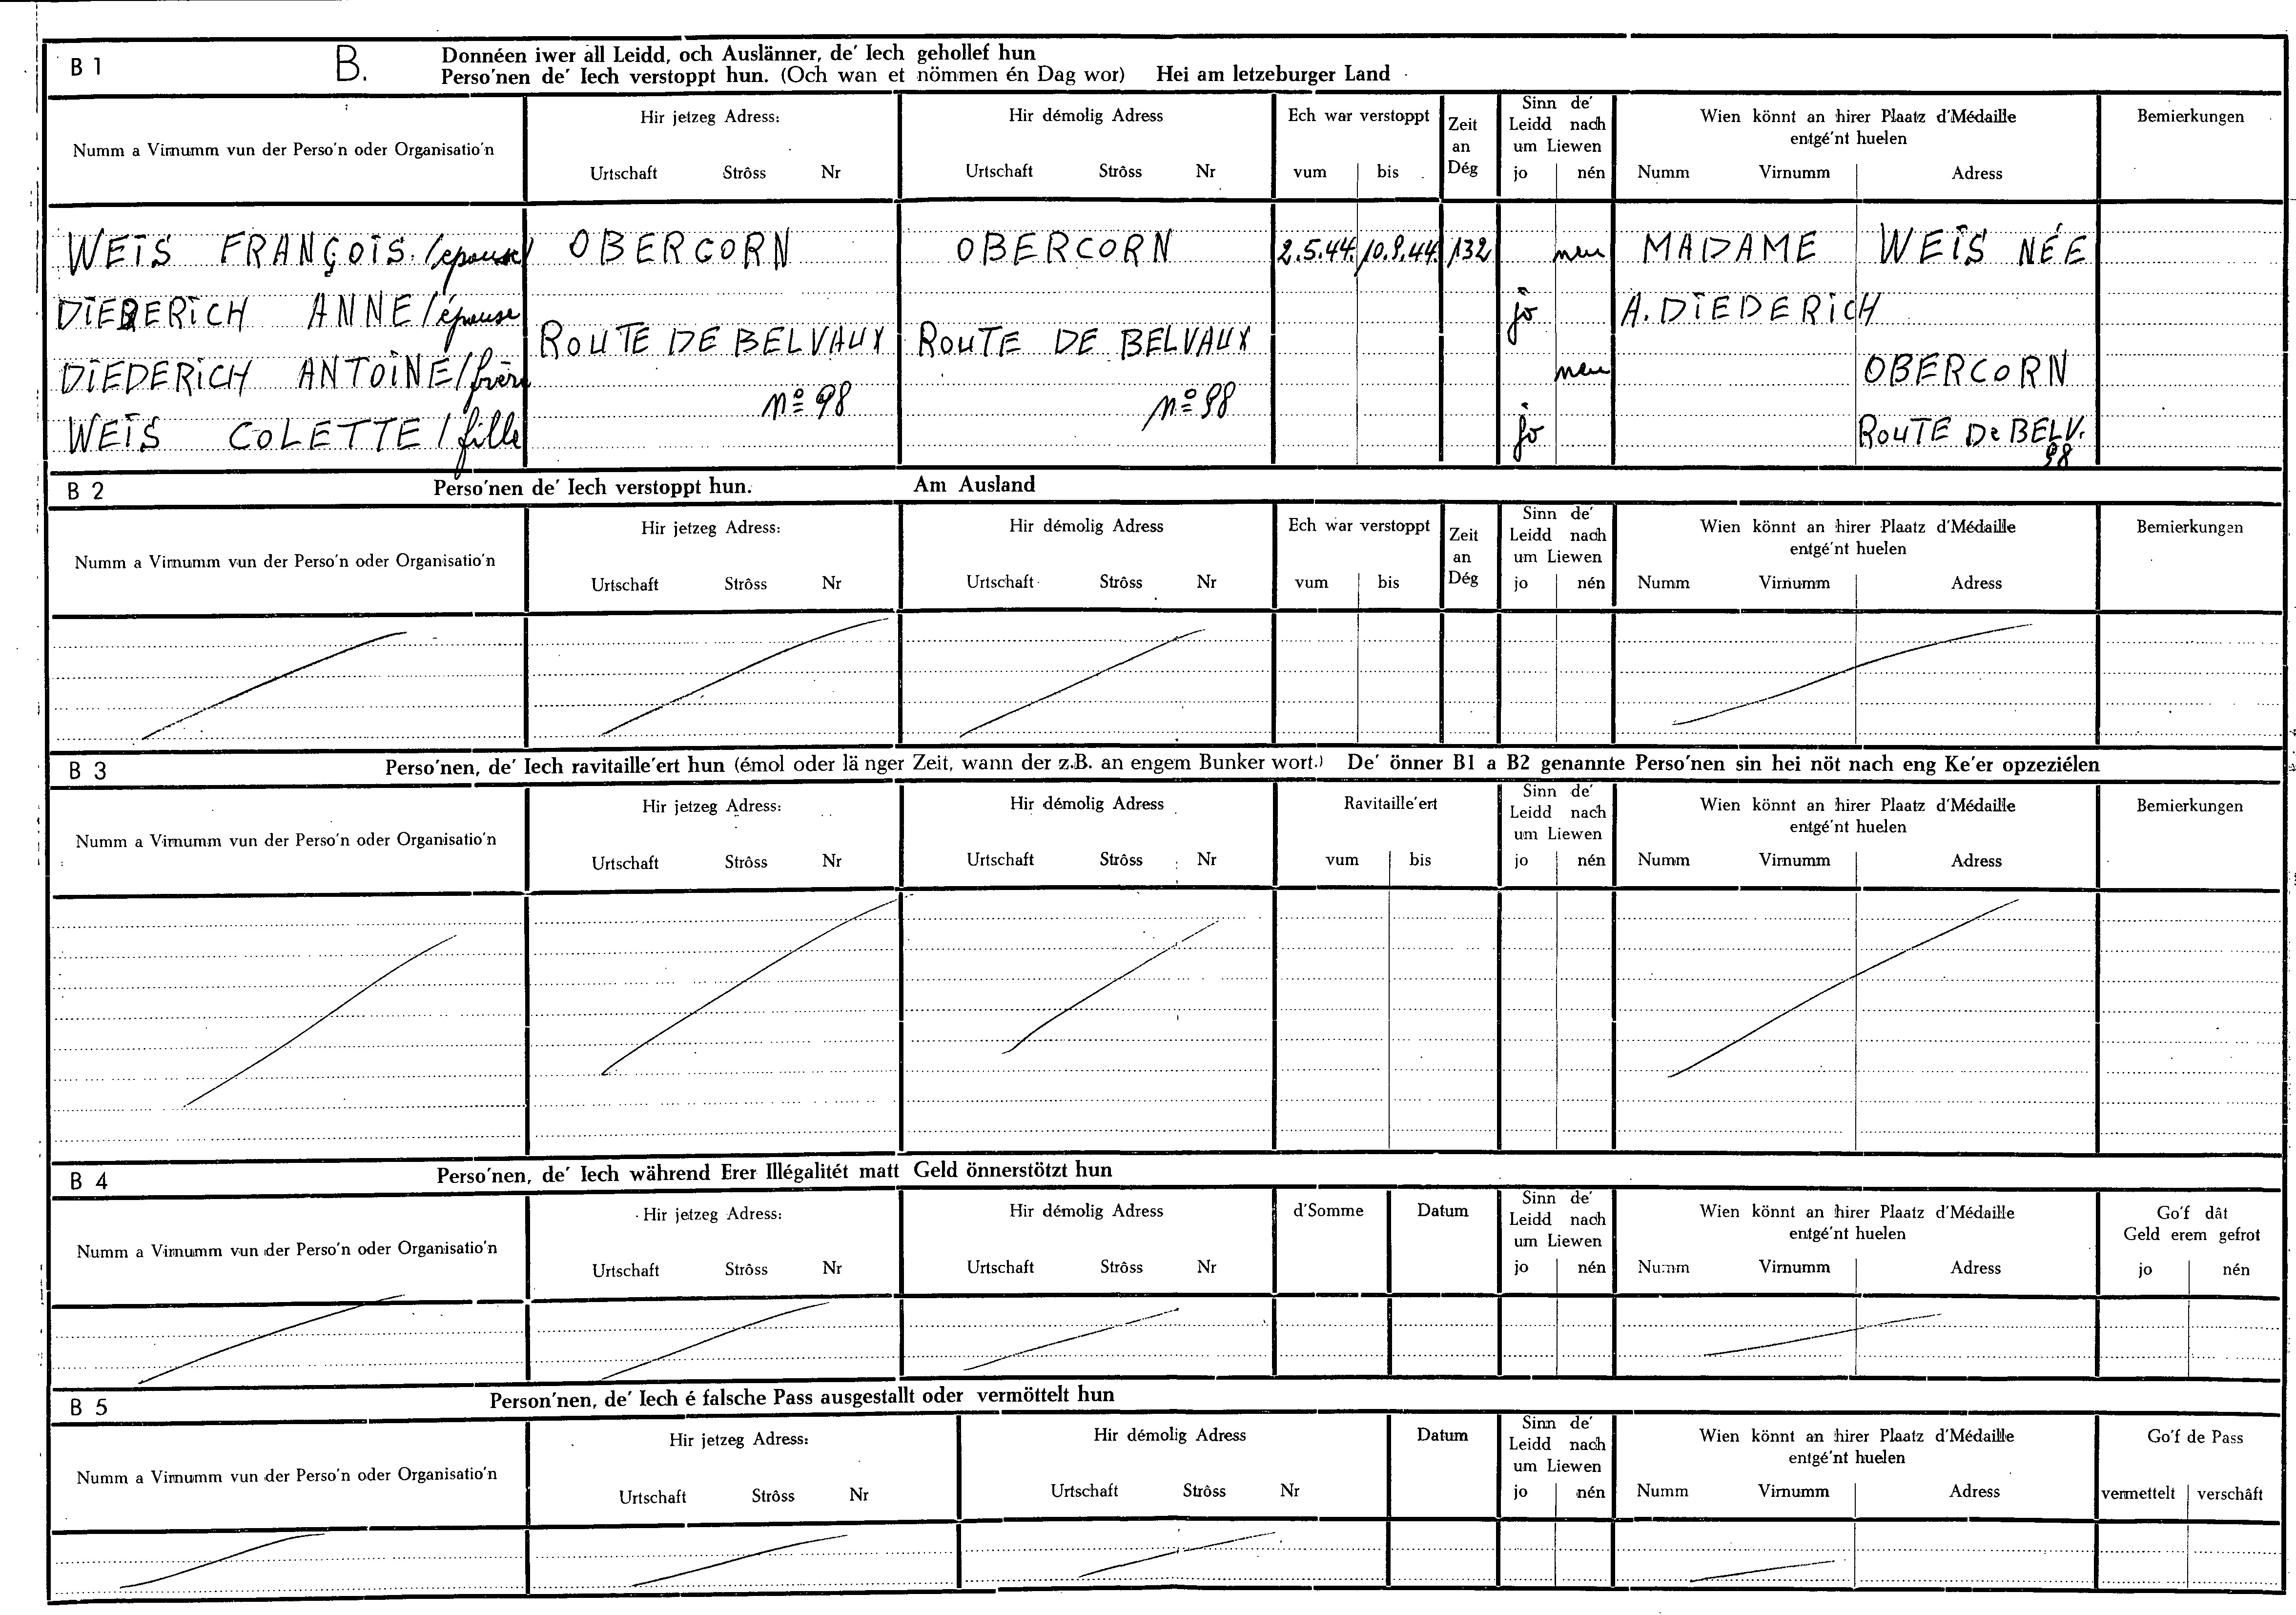 B 1 B. Donnéen iwer all Leidd, och Auslänner, de' Iech gehollef hun
Perso'nen de' Iech verstoppt hun. (Och wan et nömmen én Dag wor) Hei am letzeburger Land
Numm a Virnumm vun der Perso'n oder Organisatio'n
Hir jetzeg Adress:
Urtschaft Strôss Nr
Hir démolig Adress
Urtschaft Strôss Nr
Ech war verstoppt
vum bis
Zeit
an
Dég
Sinn de'
Leidd nach
um Liewen
jo nén
Wien könnt an hirer Plaatz d'Médaille
entgé'nt huelen
Numm Virnumm Adress
Bemierkungen
WEIS FRANÇOIS. /épouse/ OBERCORN OBERCORN 2.5.44. 10.9.44. 132 neu MADAME WEIS NÉE
DIEDERICH ANNE /épouse jo A. DIEDERICH
ROUTE DE BELVAUX ROUTE DE BELVAUX
DIEDERICH ANTOINE /frère neu OBERCORN
nº 98 nº 98
WEIS COLETTE / fille jo ROUTE De BELV.
98
B 2 Perso'nen de' Iech verstoppt hun. Am Ausland
Numm a Virnumm vun der Perso'n oder Organisatio'n
Hir jetzeg Adress:
Urtschaft Strôss Nr
Hir démolig Adress
Urtschaft Strôss Nr
Ech war verstoppt
vum bis
Zeit
an
Dég
Sinn de'
Leidd nach
um Liewen
jo nén
Wien könnt an hirer Plaatz d'Médaille
entgé'nt huelen
Numm Virnumm Adress
Bemierkungen
B 3 Perso'nen, de' Iech ravitaille'ert hun (émol oder länger Zeit, wann der z.B. an engem Bunker wort.) De' önner B1 a B2 genannte Perso'nen sin hei nöt nach eng Ke'er opzeziélen
Numm a Virnumm vun der Perso'n oder Organisatio'n
Hir jetzeg Adress:
Urtschaft Strôss Nr
Hir démolig Adress
Urtschaft Strôss Nr
Ravitaille'ert
vum bis
Sinn de'
Leidd nach
um Liewen
jo nén
Wien könnt an hirer Plaatz d'Médaille
entgé'nt huelen
Numm Virnumm Adress
Bemierkungen
B 4 Perso'nen, de' Iech während Erer Illégalitét matt Geld önnerstötzt hun
Numm a Virnumm vun der Perso'n oder Organisatio'n
Hir jetzeg Adress:
Urtschaft Strôss Nr
Hir démolig Adress
Urtschaft Strôss Nr
d'Somme
Datum
Sinn de'
Leidd nach
um Liewen
jo nén
Wien könnt an hirer Plaatz d'Médaille
entgé'nt huelen
Numm Virnumm Adress
Go'f dât
Geld erem gefrot
jo nén
B 5 Person'nen, de' Iech é falsche Pass ausgestallt oder vermöttelt hun
Numm a Virnumm vun der Perso'n oder Organisatio'n
Hir jetzeg Adress:
Urtschaft Strôss Nr
Hir démolig Adress
Urtschaft Strôss Nr
Datum
Sinn de'
Leidd nach
um Liewen
jo nén
Wien könnt an hirer Plaatz d'Médaille
entgé'nt huelen
Numm Virnumm Adress
Go'f de Pass
vermettelt verschâft